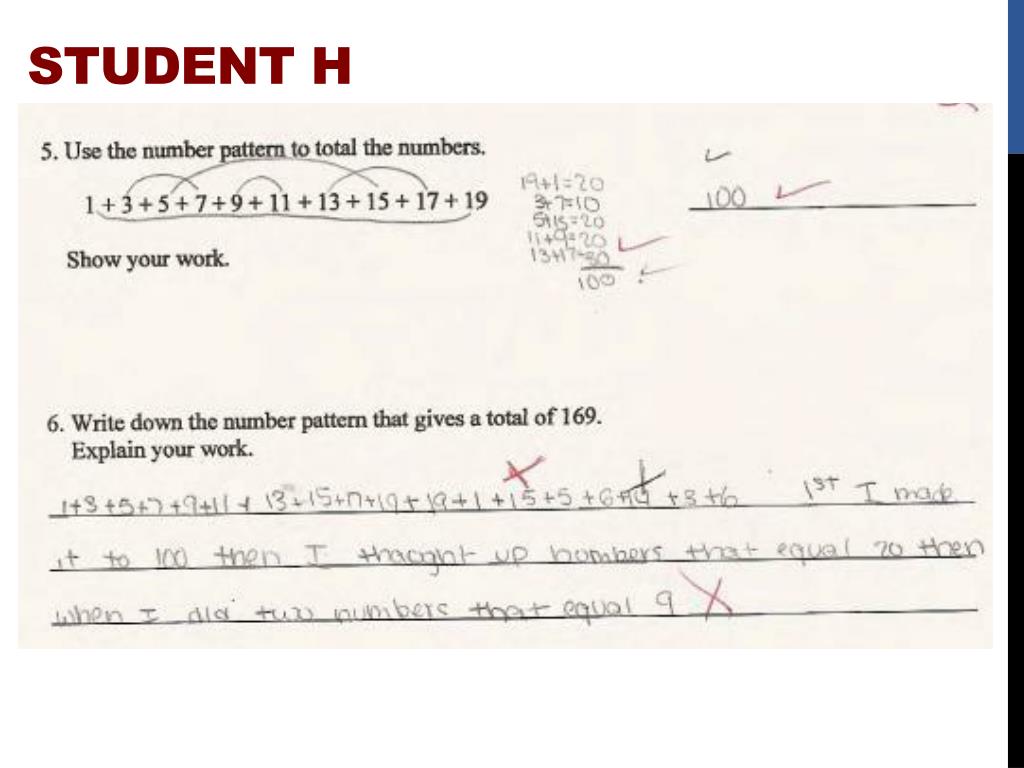 STUDENT H
5. Use the number pattern to total the numbers.
1 + 3 + 5 + 7 + 9 + 11 + 13 + 15 + 17 + 19
19+1=20
3+7=10
5+15=20
11+9=20
13+17=30
100
100
Show your work.
6. Write down the number pattern that gives a total of 169.
Explain your work.
1+3+5+7+9+11+13+15+17+19+19+1+15+5+6+14+3+6 1st I made
it to 100 then I thaoght up nombers that equal 20 then
when I did two numbers that equal 9